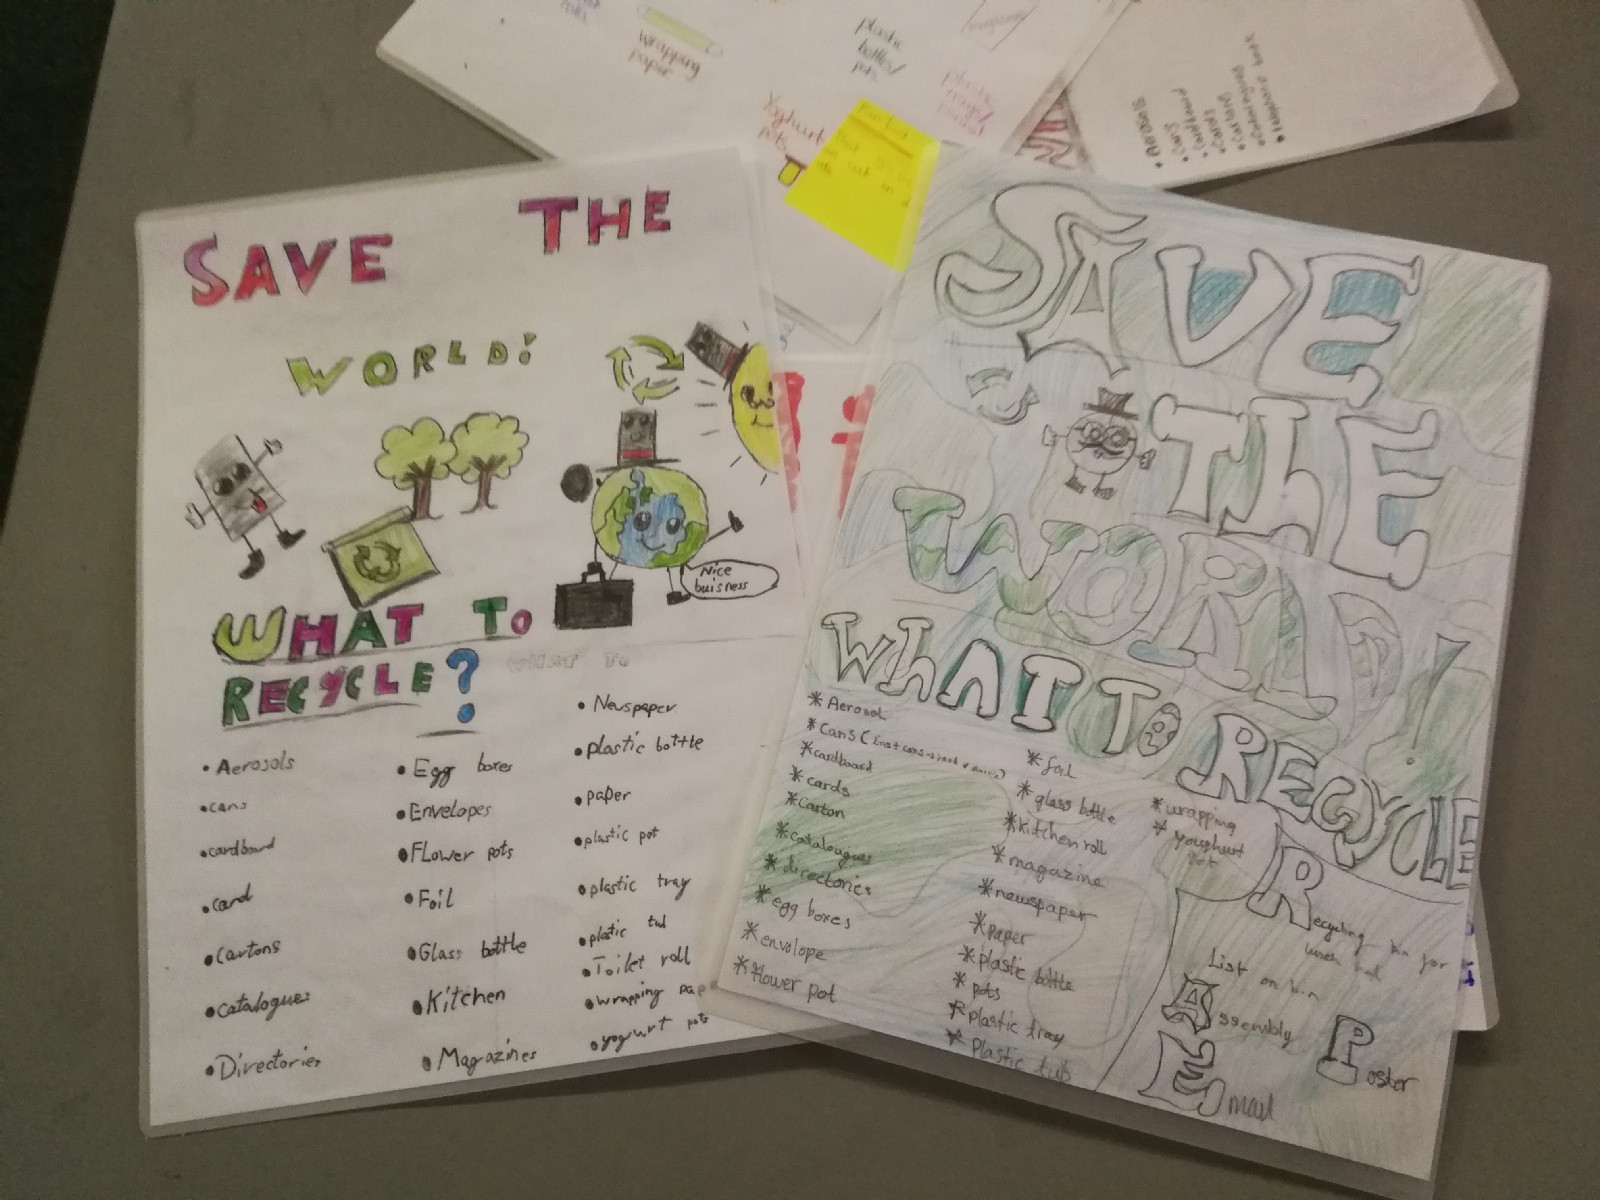 wrapping
paper
plastic
bottles/
pots
plastic
trays/
Yoghurt
pots
• Aerosols
• Cans
• Cardboard
• Cards
• Cartons
SAVE THE
WORLD!
Nice
buisness
WHAT TO
RECYCLE?
WHAT TO
• Aerosols
• cans
• cardboard
• card
• Cartons
• catalogues
• Directories
• Egg boxes
• Envelopes
• Flower pots
• Foil
• Glass bottle
• Kitchen
• Magazines
• Newspaper
• plastic bottle
• paper
• plastic pot
• plastic tray
• plastic tub
• Toilet roll
• wrapping pap
• yogurt pots
SAVE
THE
WORLD!
WHAT TO RECYCLE
* Aerosol
* Cans
* cardboard
* cards
* Carton
* catalougues
* directories
* egg boxes
* envolope
* flower pot
* foil
* glass bottle
* kitchen roll
* magazine
* newspaper
* paper
* plastic bottle
* pots
* plastic tray
* plastic tub
* wrapping
* youghurt
pot
Recycling bin for
lunch hall
List on bin
Assembly
Poster
Email